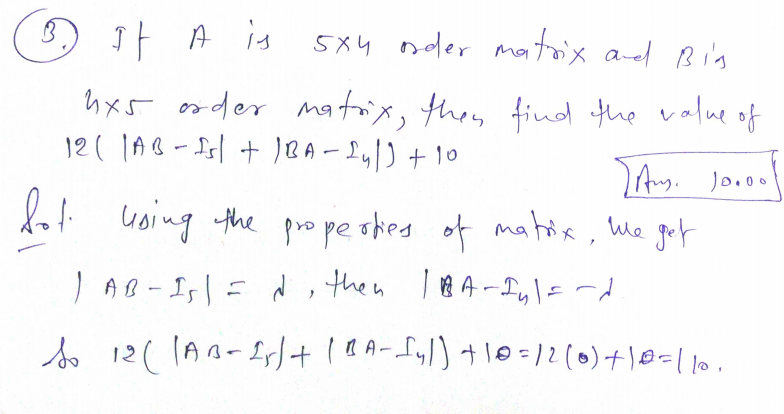 3. If A is 5x4 order matrix and B is
4x5 order matrix, then find the value of
12( |AB - I5| + |BA - I4|) + 10
Ans. 10.00
Sol. Using the properties of matrix, we get
|AB - I5| = d, then |BA - I4| = -d
So 12( |AB - I5| + |BA - I4|) + 10 = 12(0) + 10 = 10.